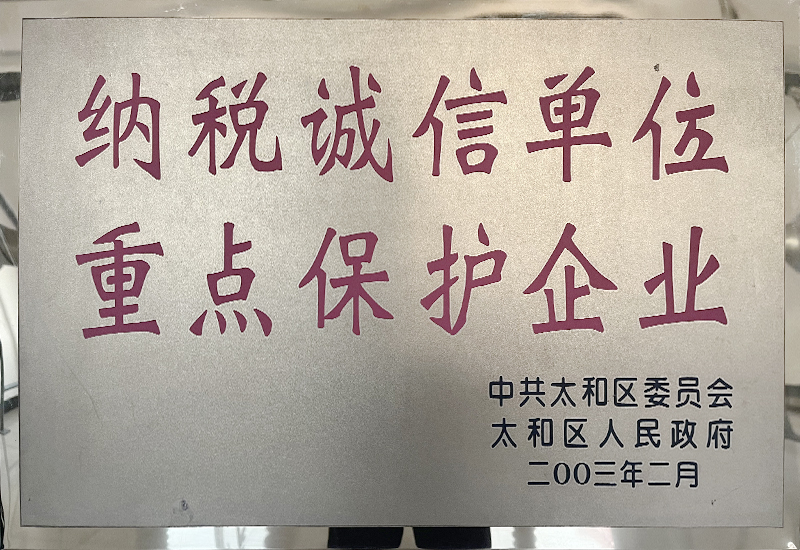 纳税诚信单位
重点保护企业
中共太和区委员会
太和区人民政府
二00三年二月